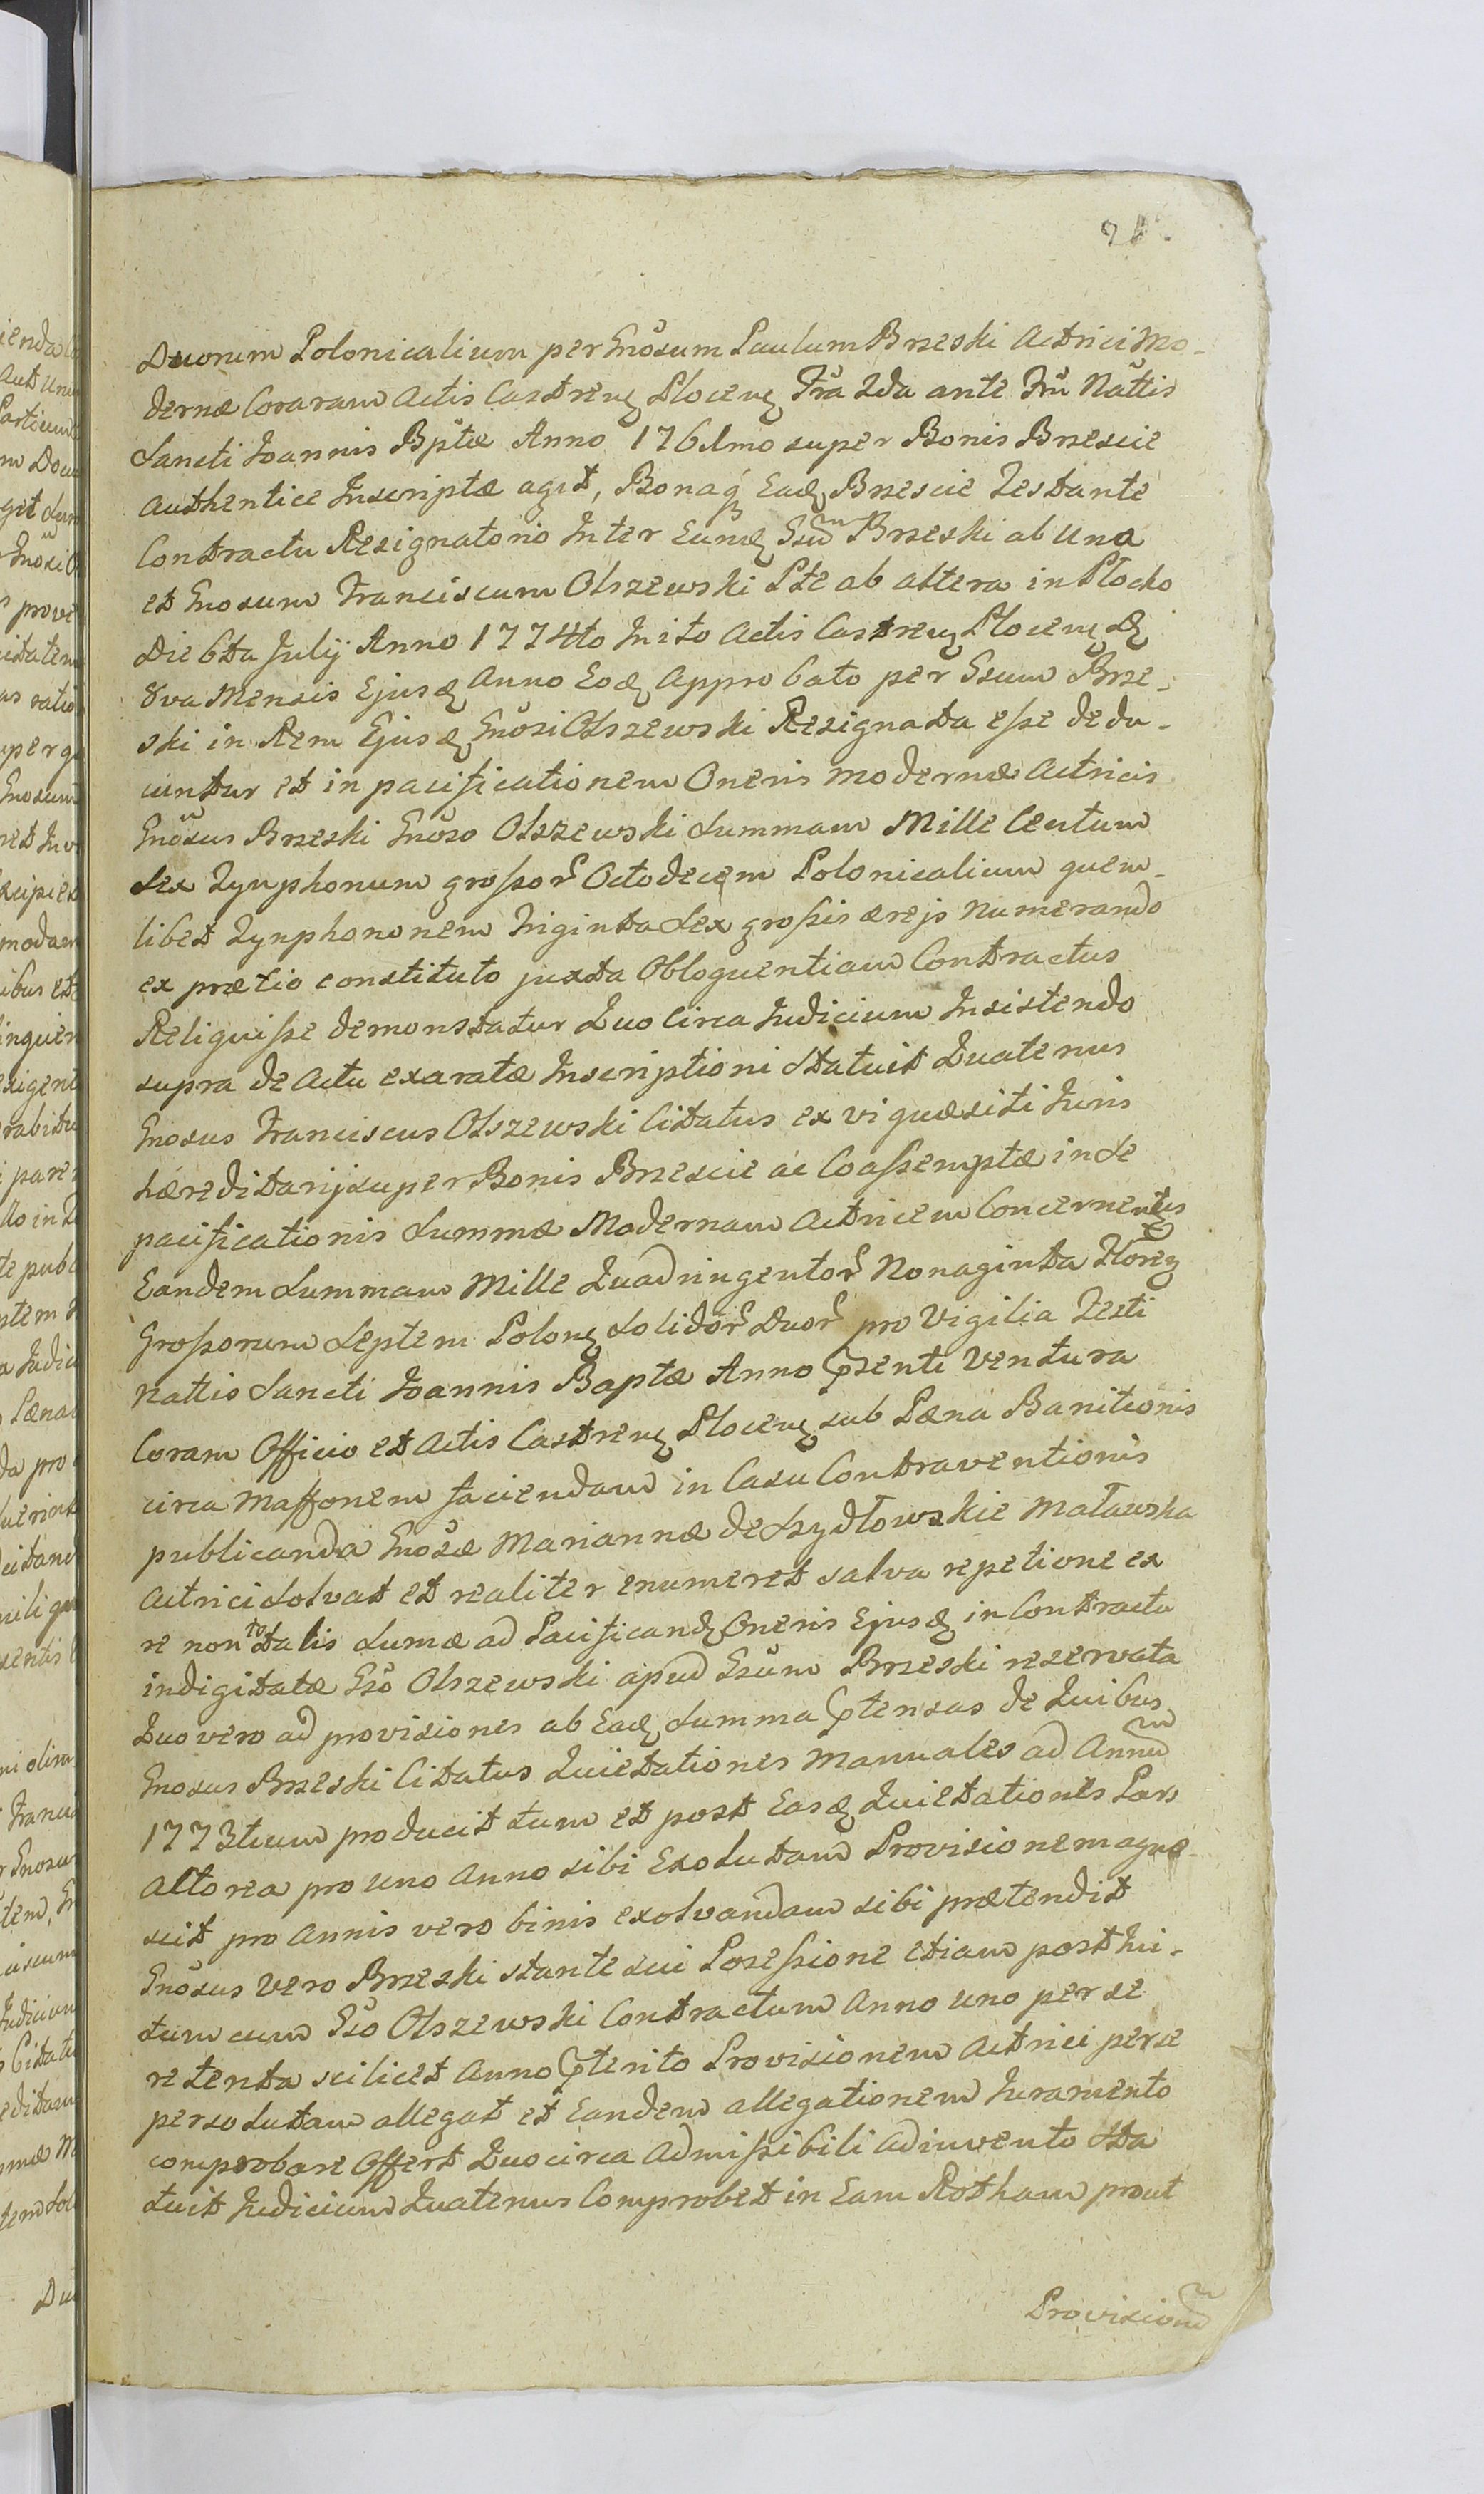 Duorum Polonicalium per Gnosum Paulum Brzeski Actrici Mo-
dernæ Coraram Actis Castren Plocen Fra 2da ante Frū Nattis
Sancti Joannis Bptæ Anno 1761mo super Bonis Brzescie
Authentice Inscriptæ agit, Bonaq Ead Brzescie Testante
Contractu Resignatorio Inter Eund Gsum Brzeski ab Una
et Gnosum Franciscum Olszewski Pte ab altera in Płocko
Die 6ta Julij Anno 1774to Inito Actis Castren Plocen D
8va Mensis Ejusd Anno Eod Approbato per Gsum Brze-
ski in Rem Ejusd Gnosi Olszewski Resignata esse dedu-
cuntur et in pacificationem Oneris modernæ Actricis
Gnosus Brzeski Gnoso Olszewski Summam Mille Centum
Sex Tynphonum grossor Octodecem Polonicalium quem-
libet Tynphononem Triginta Sex grossis ærejs Numerando
ex prætio constituto juxta Obloquentiam Contractus
Reliquisse demonstatur Quo Circa Judicium Insistendo
supra de Actu exaratæ Inscriptioni Statuit Quatenus
Gnosus Franciscus Olszewski Citatus ex vi quæsiti Juris
hæreditarij super Bonis Brzescie ac Coassemptæ in se
pacificationis Summæ Modernam Actricem Concernentis
Eandem Summam Mille Quadringentor Nonaginta Floren
Grossorum Septem Polon Solidor Duor pro Vigilia Festi
Nattis Sancti Joannis Baptæ Anno psenti Ventura
Coram Officio et Actis Castren Plocen sub Pæna Banitionis
circa Maffonem faciendam in Casu Contraventionis
publicanda Gnosæ Mariannæ de Szydłowskie Maławska
Actrici Solvat et realiter enumeret salva repetione ex
re non totalis Sumæ ad Pacificand Oneris Ejusd in Contractu
indigitatæ Gso Olszewski apud Gsum Brzeski reservata
Quo vero ad provisiones ab Ead Summa ptensas de Quibus
Gnosus Brzeski Citatus Quietationes Manuales ad Annū
1773tium producit tum et post Easd Quietationes Pars
Altorea pro uno Anno sibi Exolutam Provisionem agno-
scit pro Annis vero binis exolvandam sibi prætendit
Gnosus Vero Brzeski stante sui Possessione etiam post Ini-
tum cum Gso Olszewski Contractum Anno uno per se
retenta scilicet Anno pterito Provisionem Actrici per se
persolutam allegat et Eandem allegationem Juramento
comprobare Offert Quocirca Admissibili Adinvento Sta
tuit Judicium Quatenus Comprobet in Eam Rotham prout
Provisionē